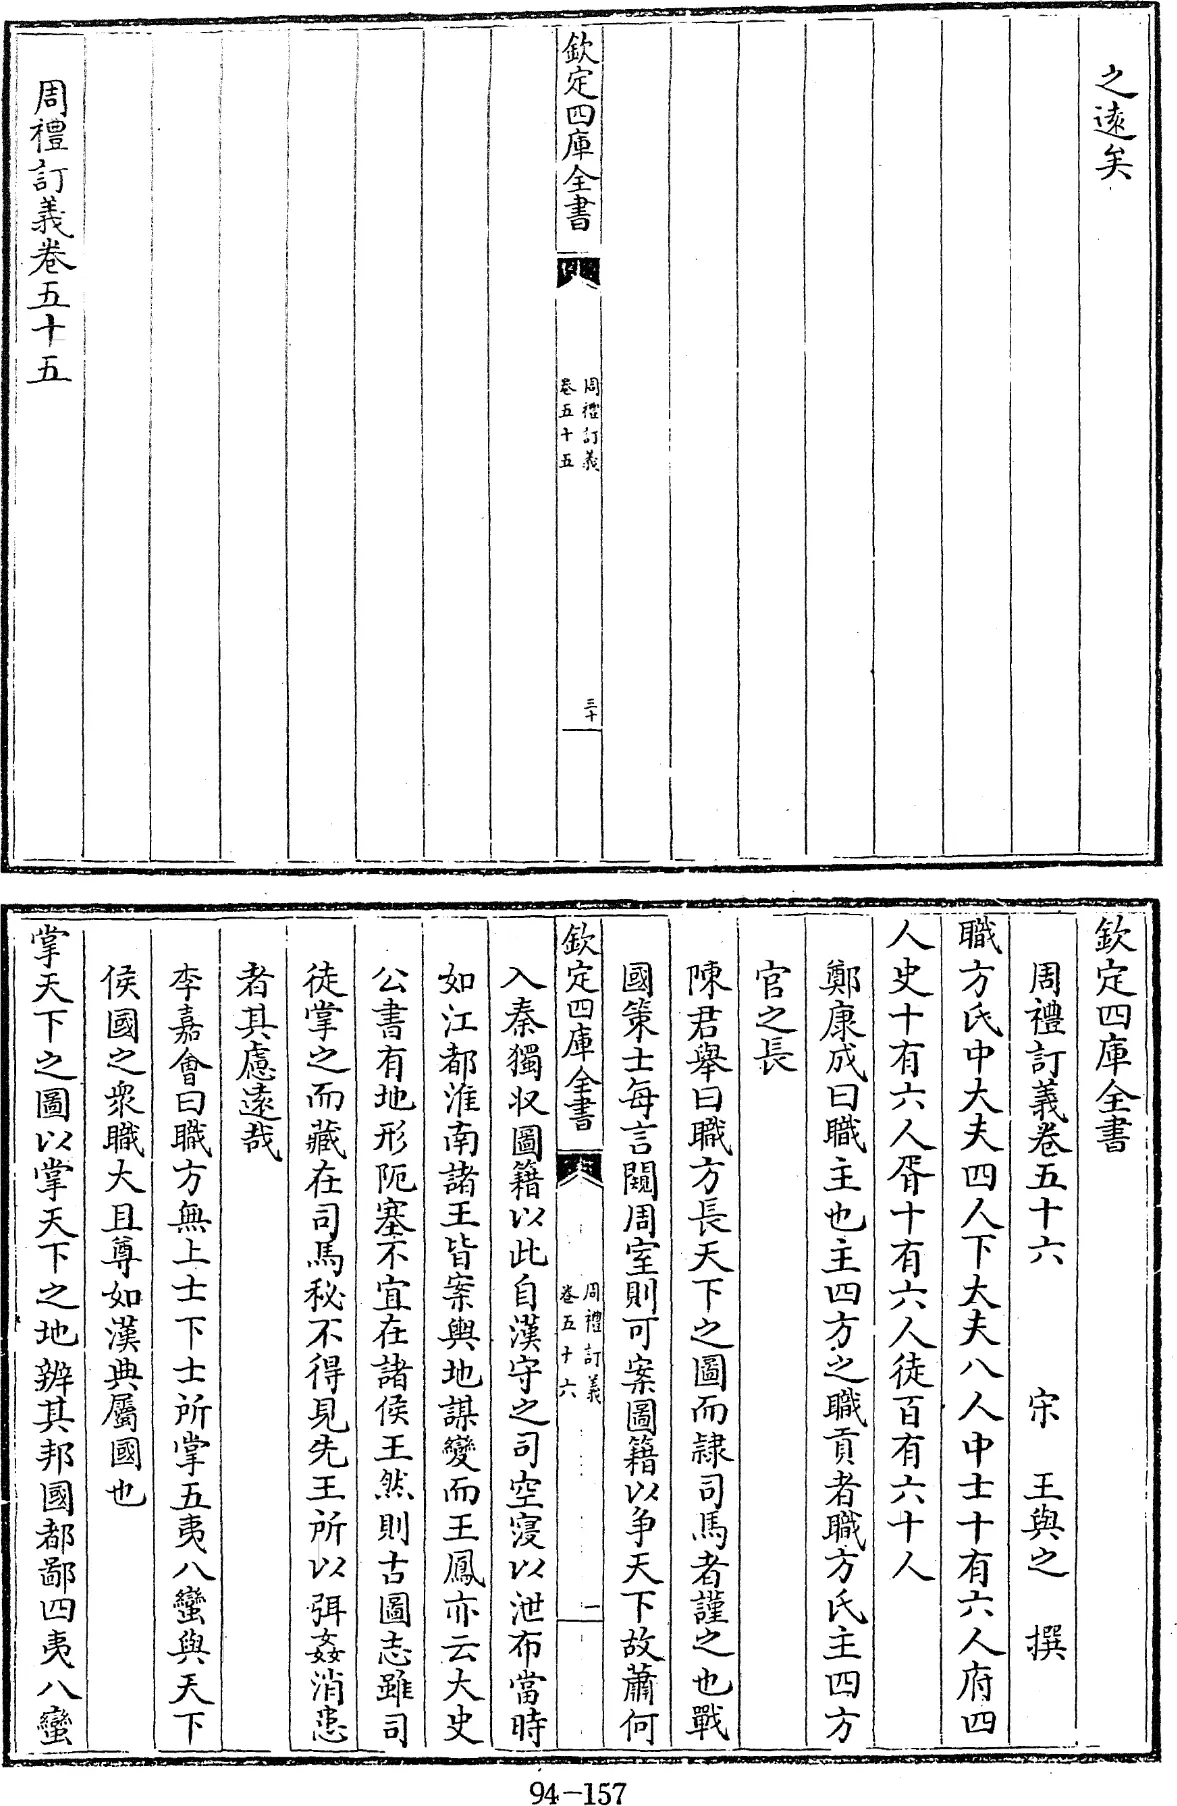 之遠矣
欽定四庫全書
周禮訂義
卷五十五
三十
周禮訂義卷五十五
欽定四庫全書
周禮訂義卷五十六 宋 王與之 撰
職方氏中大夫四人下大夫八人中士十有六人府四
人史十有六人胥十有六人徒百有六十人
鄭康成曰職主也主四方之職貢者職方氏主四方
官之長
陳君舉曰職方長天下之圖而隷司馬者謹之也戰
國策士每言闚周室則可案圖籍以争天下故蕭何
欽定四庫全書
周禮訂義
卷五十六
一
入秦獨収圖籍以此自漢守之司空寖以泄布當時
如江都淮南諸王皆案輿地謀變而王鳳亦云大史
公書有地形阨塞不宜在諸侯王然則古圖志雖司
徒掌之而藏在司馬秘不得見先王所以弭姦消患
者其慮遠哉
李嘉會曰職方無上士下士所掌五夷八蠻與天下
侯國之衆職大且尊如漢典屬國也
掌天下之圖以掌天下之地辨其邦國都鄙四夷八蠻
94-157